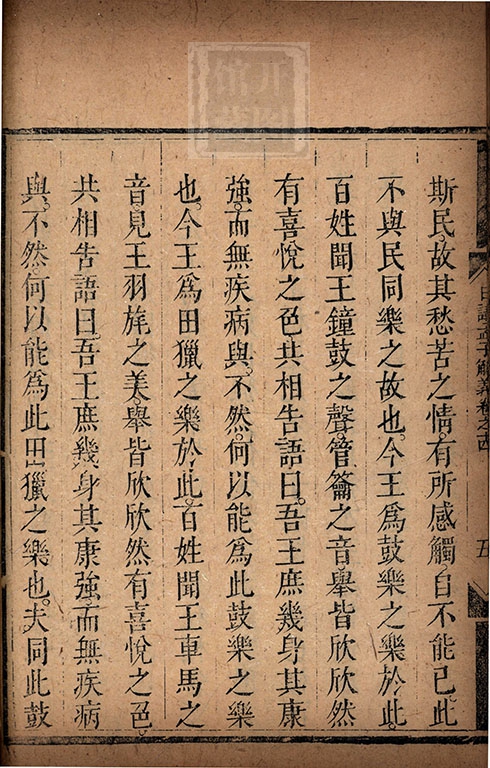 日講孟子解義卷之四
五
斯民。故其愁苦之情。有所感觸自不能已。此
不與民同樂之故也。今王爲鼓樂之樂於此。
百姓聞王鐘鼓之聲。管籥之音。舉皆欣欣然
有喜悅之色。共相告語曰。吾王庶幾身其康
強。而無疾病與。不然。何以能爲此鼓樂之樂
也。今王爲田獵之樂於此。百姓聞王車馬之
音。見王羽旄之美。舉皆欣欣然有喜悅之色。
共相告語曰。吾王庶幾身其康強。而無疾病
與。不然。何以能爲此田獵之樂也。夫同此鼓